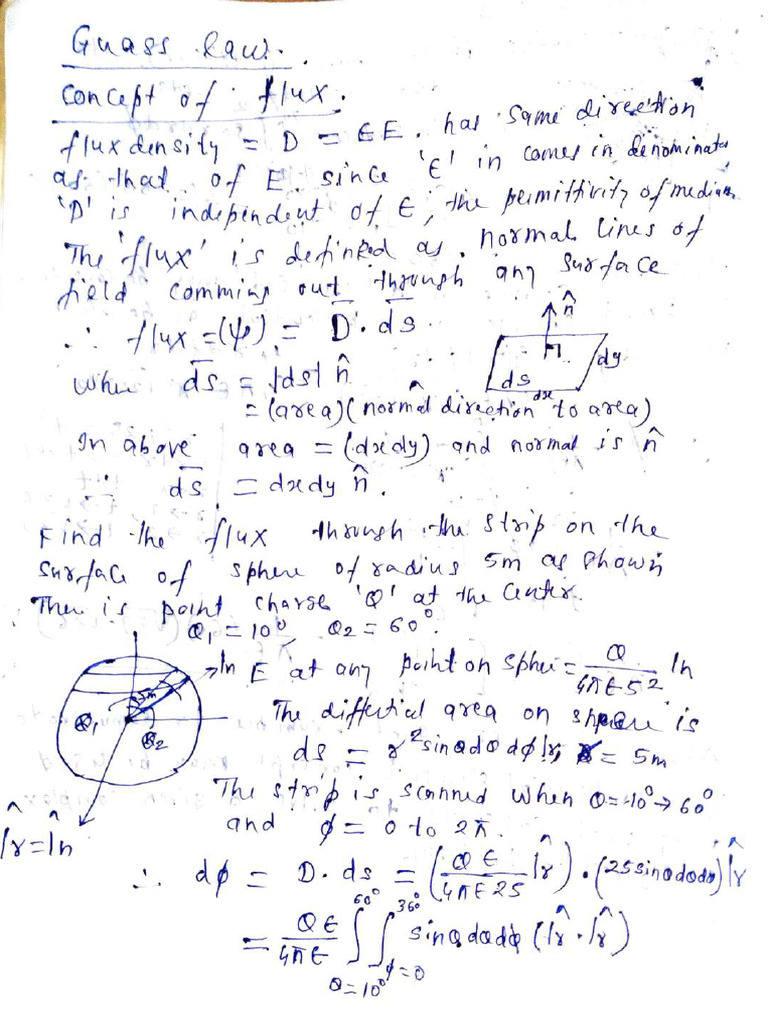 Guass law.
concept of flux.
flux density = D = ϵE. has same direction
as that of E. since 'ϵ' in comes in denominator
'D' is independent of ϵ, the permittivity of medium
The 'flux' is defined as normal lines of
field comming out through any surface
∴ flux = (ψ) = D̄ · ds̄.
n̂
ds
dx
dy
when ds̄ = |ds| n̂
= (area)(normal direction to area)
In above area = (dxdy) and normal is n̂
∴ ds̄ = dxdy n̂.
Find the flux through the strip on the
surface of sphere of radius 5m as shown
There is point charge 'Q' at the center.
θ1 = 10°, θ2 = 60°.
5m
θ1
θ2
1n
1̂r = 1̂n
E at any point on sphere = Q/4πϵ5² 1n
The differtial area on sphere is
ds = r² sinθdθdϕ 1r, r = 5m
The strip is scanned when θ = 10° → 60°
and ϕ = 0 to 2π.
∴ dϕ = D · ds = (Qϵ/4πϵ25 1̂r) · (25 sinθdθdϕ) 1̂r
= Qϵ/4πϵ ∫θ=10°^60° ∫ϕ=0^360 sinθdθdϕ (1̂r · 1̂r)